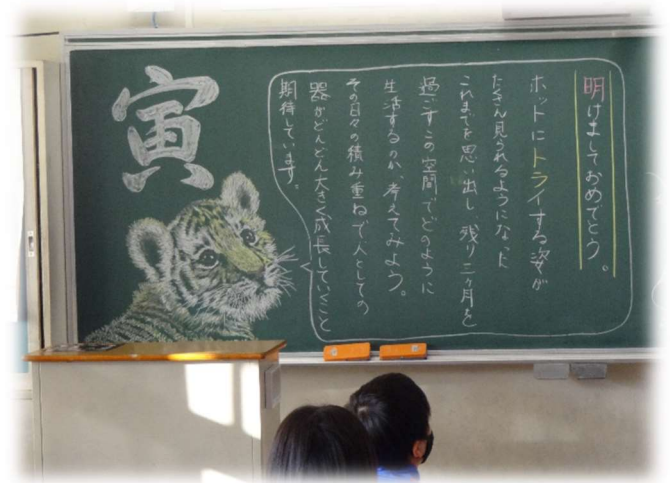 明けましておめでとう。
ホットにトライする姿が
たくさん見られるようになった
これまでを思い出し、残り三ヶ月を
過ごすこの空間でどのように
生活するのか、考えてみよう。
その日々の積み重ねで、人としての
器がどんどん大きく成長していくこと
期待しています。
寅